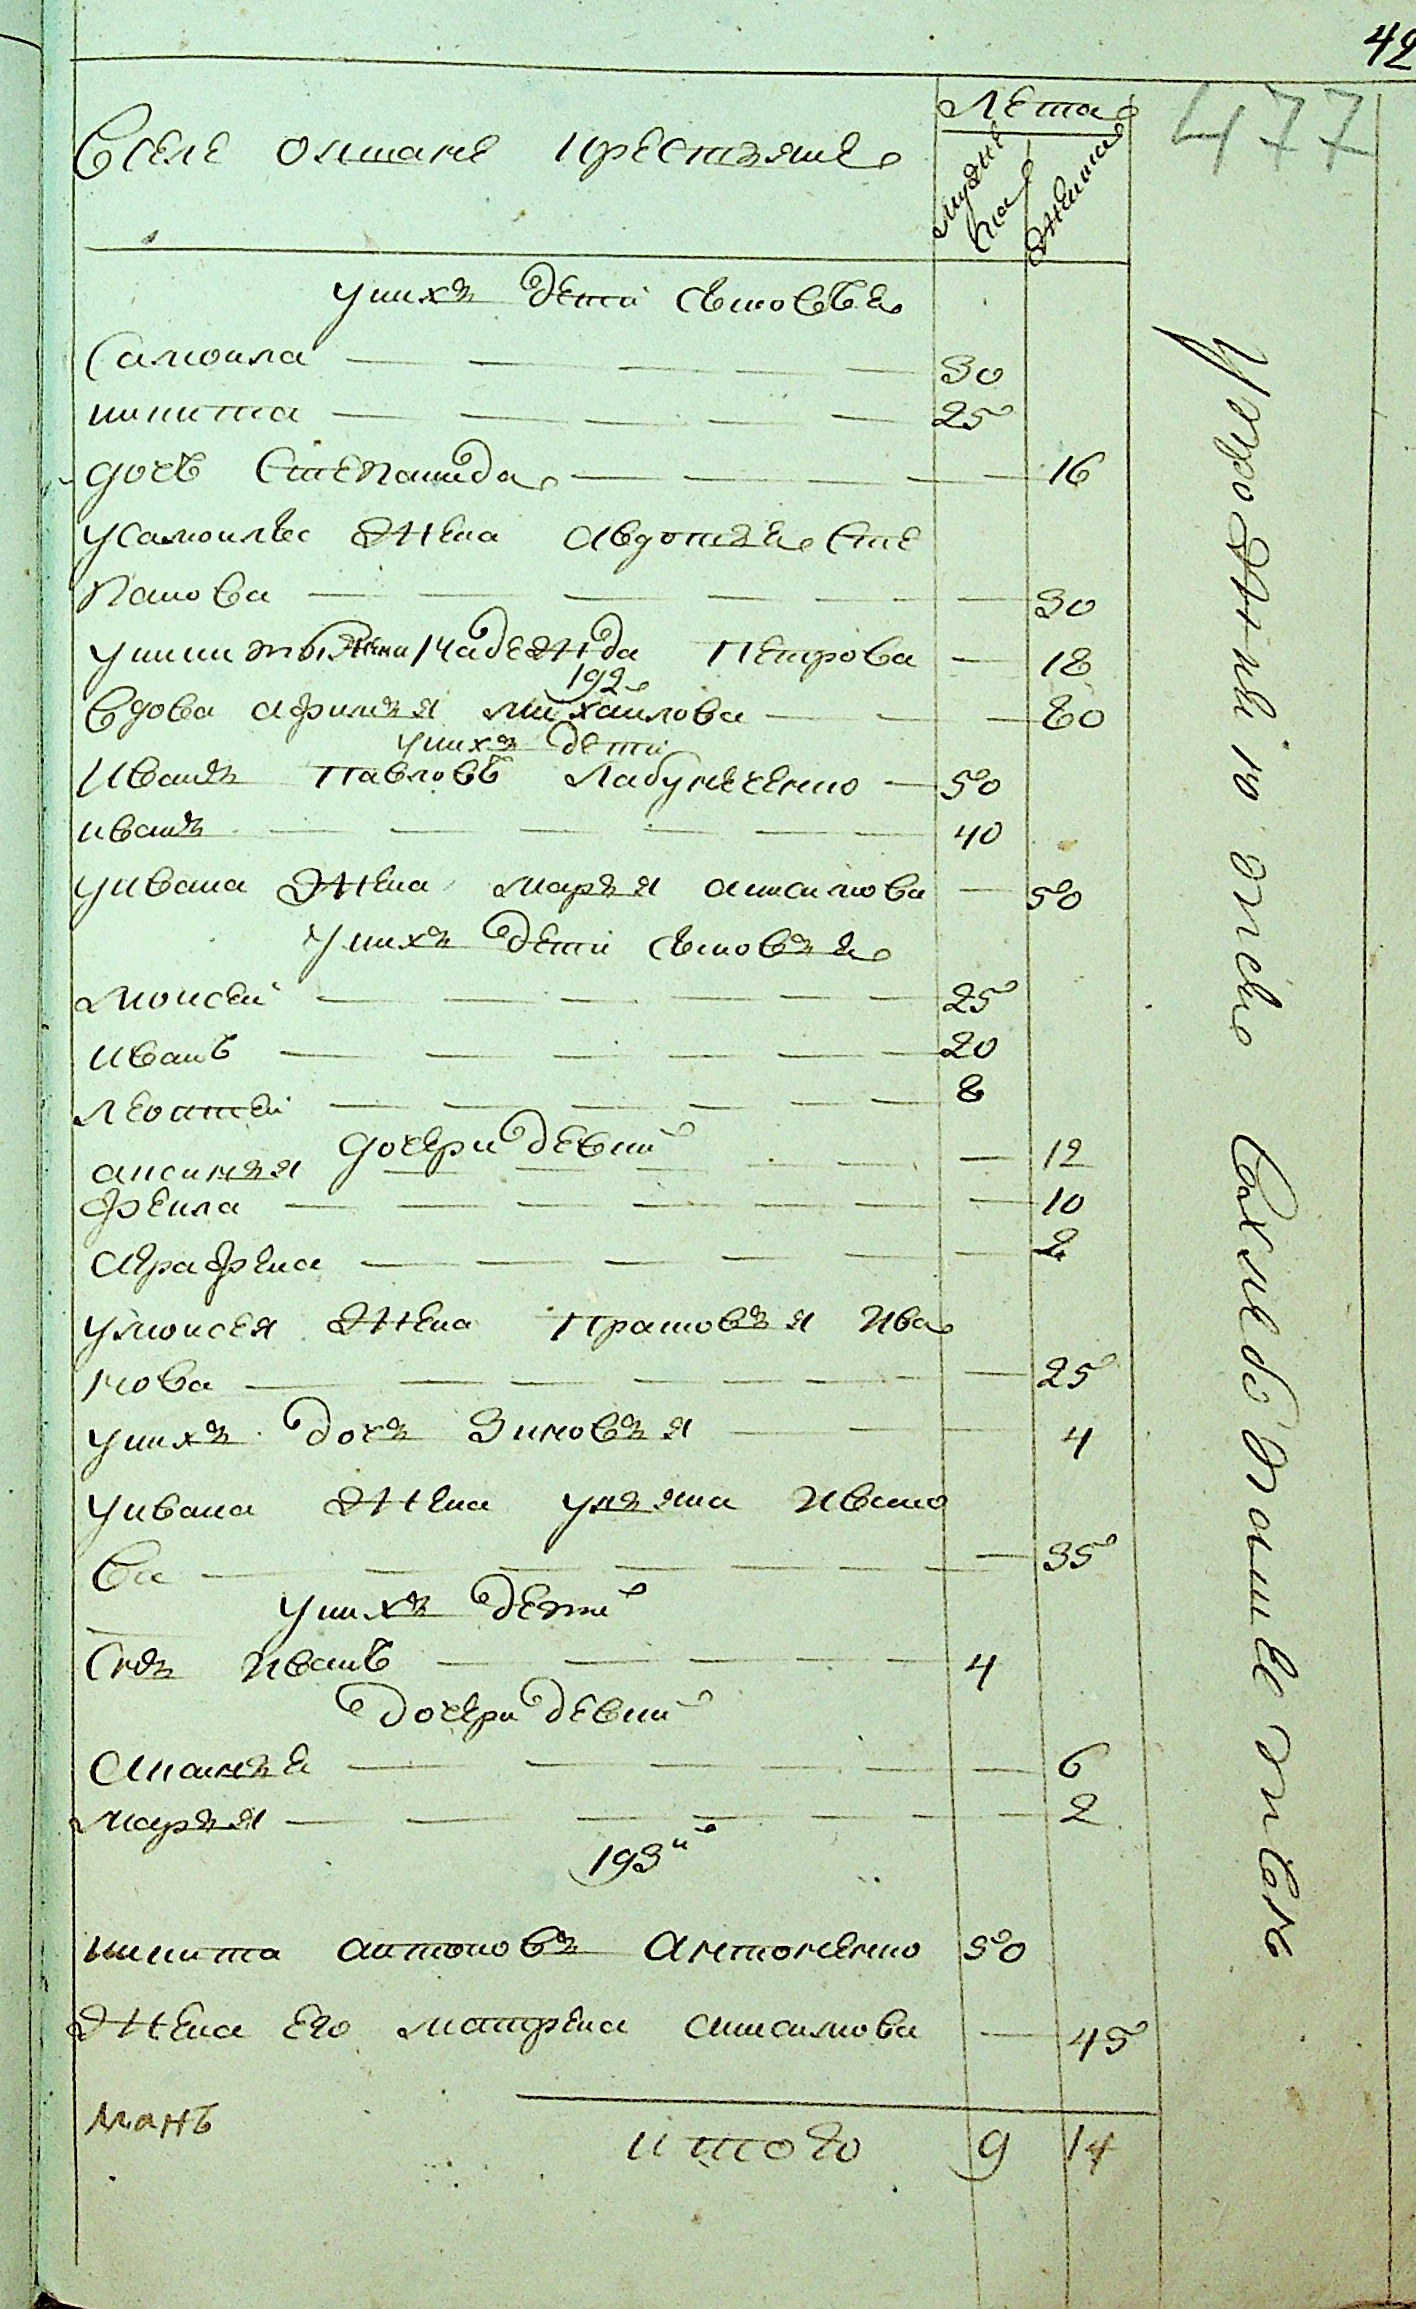 42
477
Лета
Вселе олшане крестьяне
мужеска
женска
унихъ дети сыновья
Самоила 30
никита 25
дочь Степанида 16
усамоилы жена авдотья Сте
панова 30
уникиты жена Надежда Петрова 18
192
Вдова афимья михаилова 80
унихъ дети
Иванъ Павловъ Лабунченко 50
иванъ 40
уивана жена марья анисимова 50
унихъ дети сыновья
моисей 25
иванъ 20
леонтей 8
дочери девки
аксинья 12
фекла 10
аграфена 2
умоисея жена прасковья ива
нова 25
унихъ дочь Зиновья 4
уивана жена ульяна ивано
ва 35
унихъ дети
Снъ иванъ 4
дочери девки
Анна 6
марья 2
193
никита антоновъ Антоненко 50
жена его матрена анисимова 45
итого 9 14